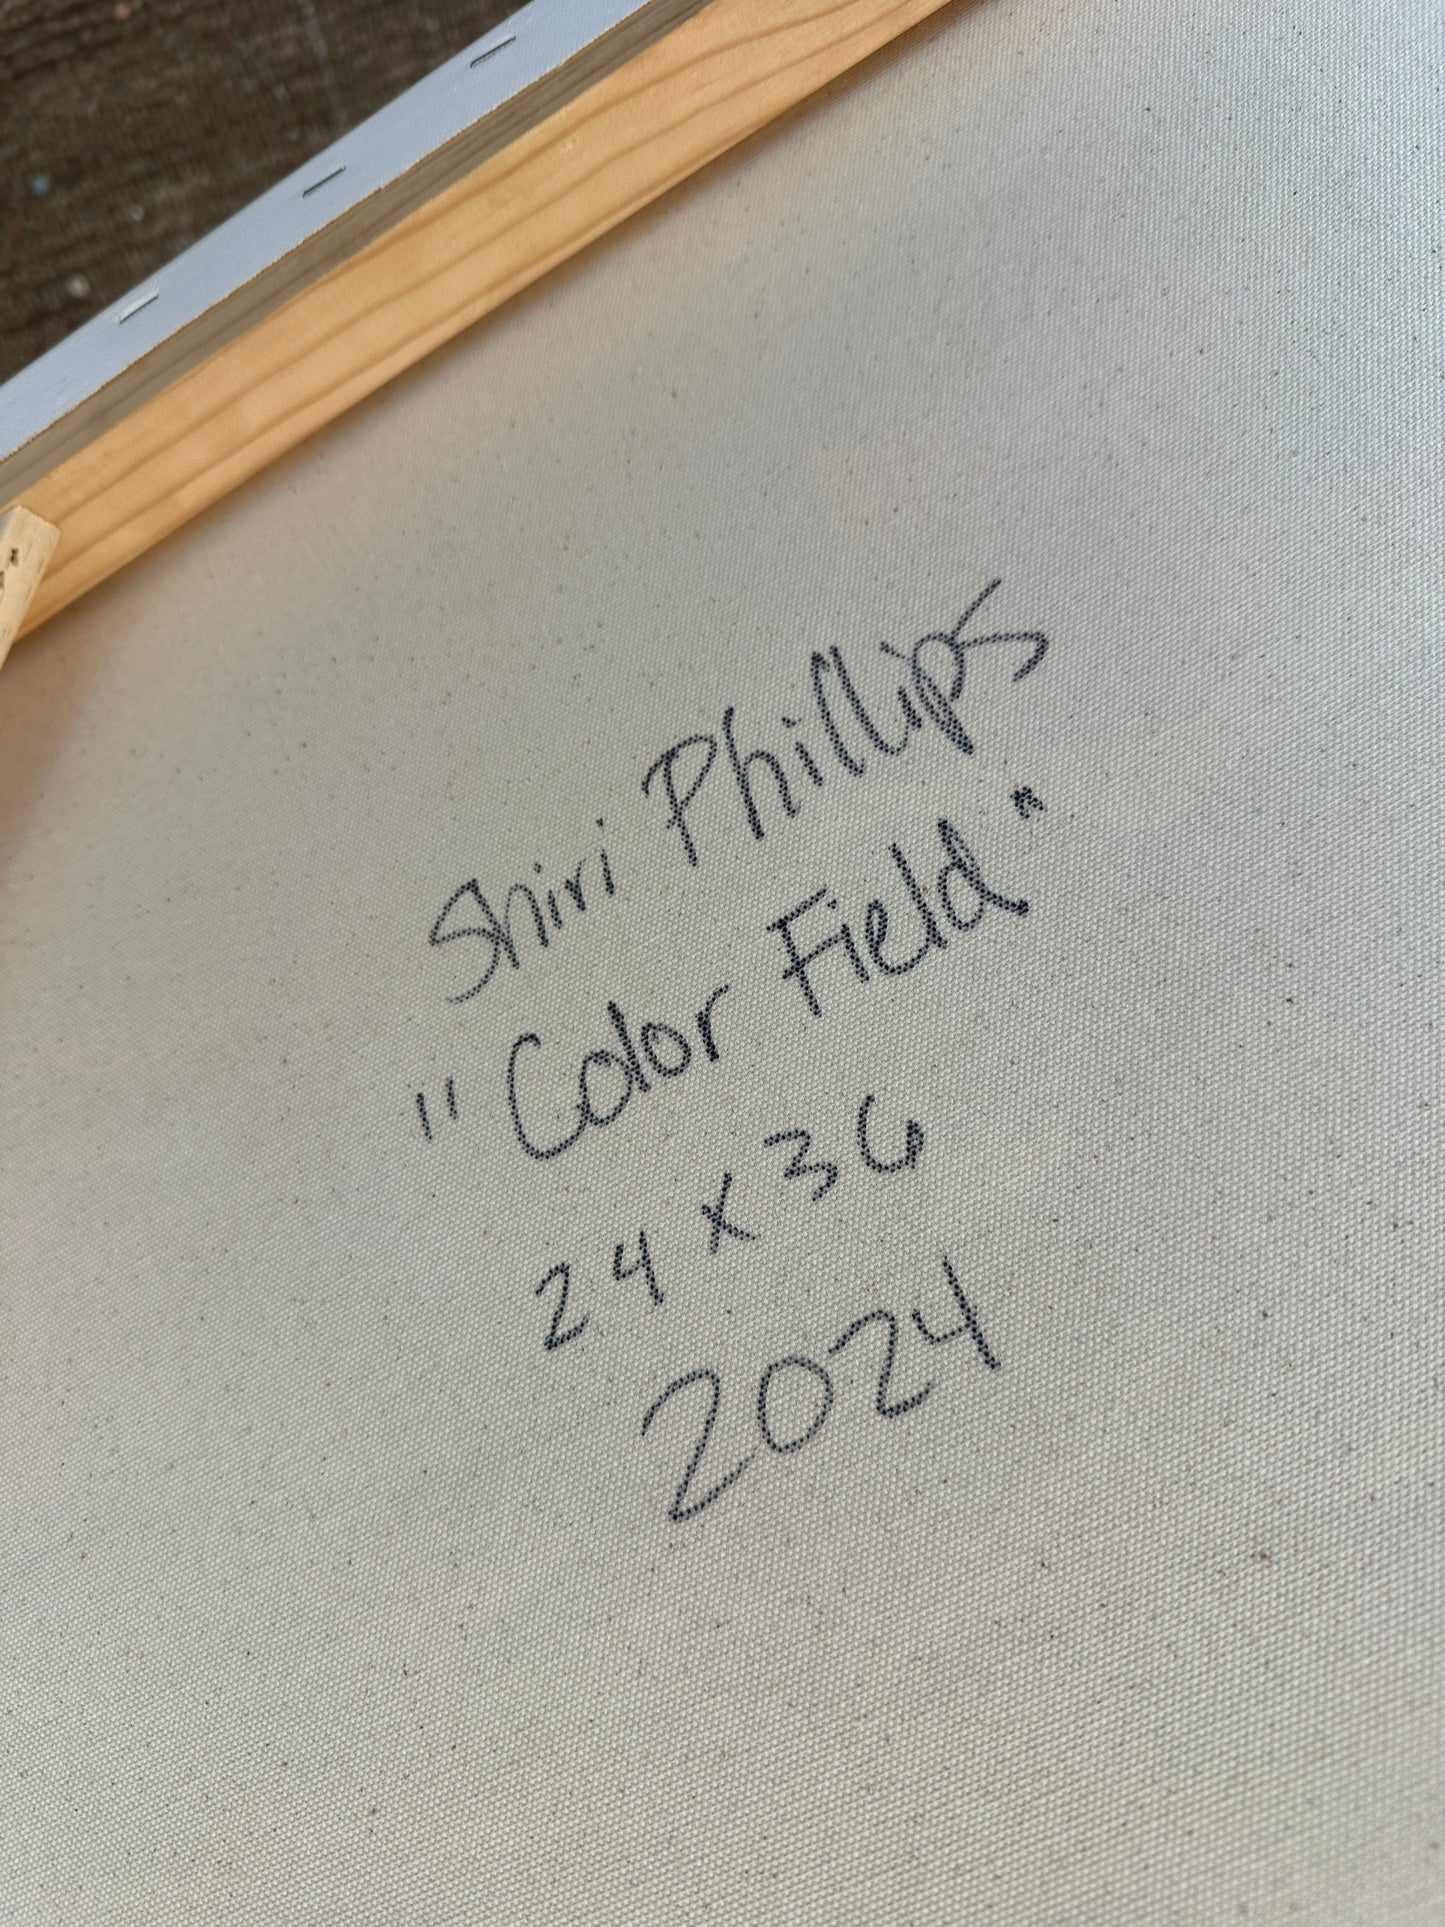 Shiri Phillips
"Color Field"
24 x 36
2024